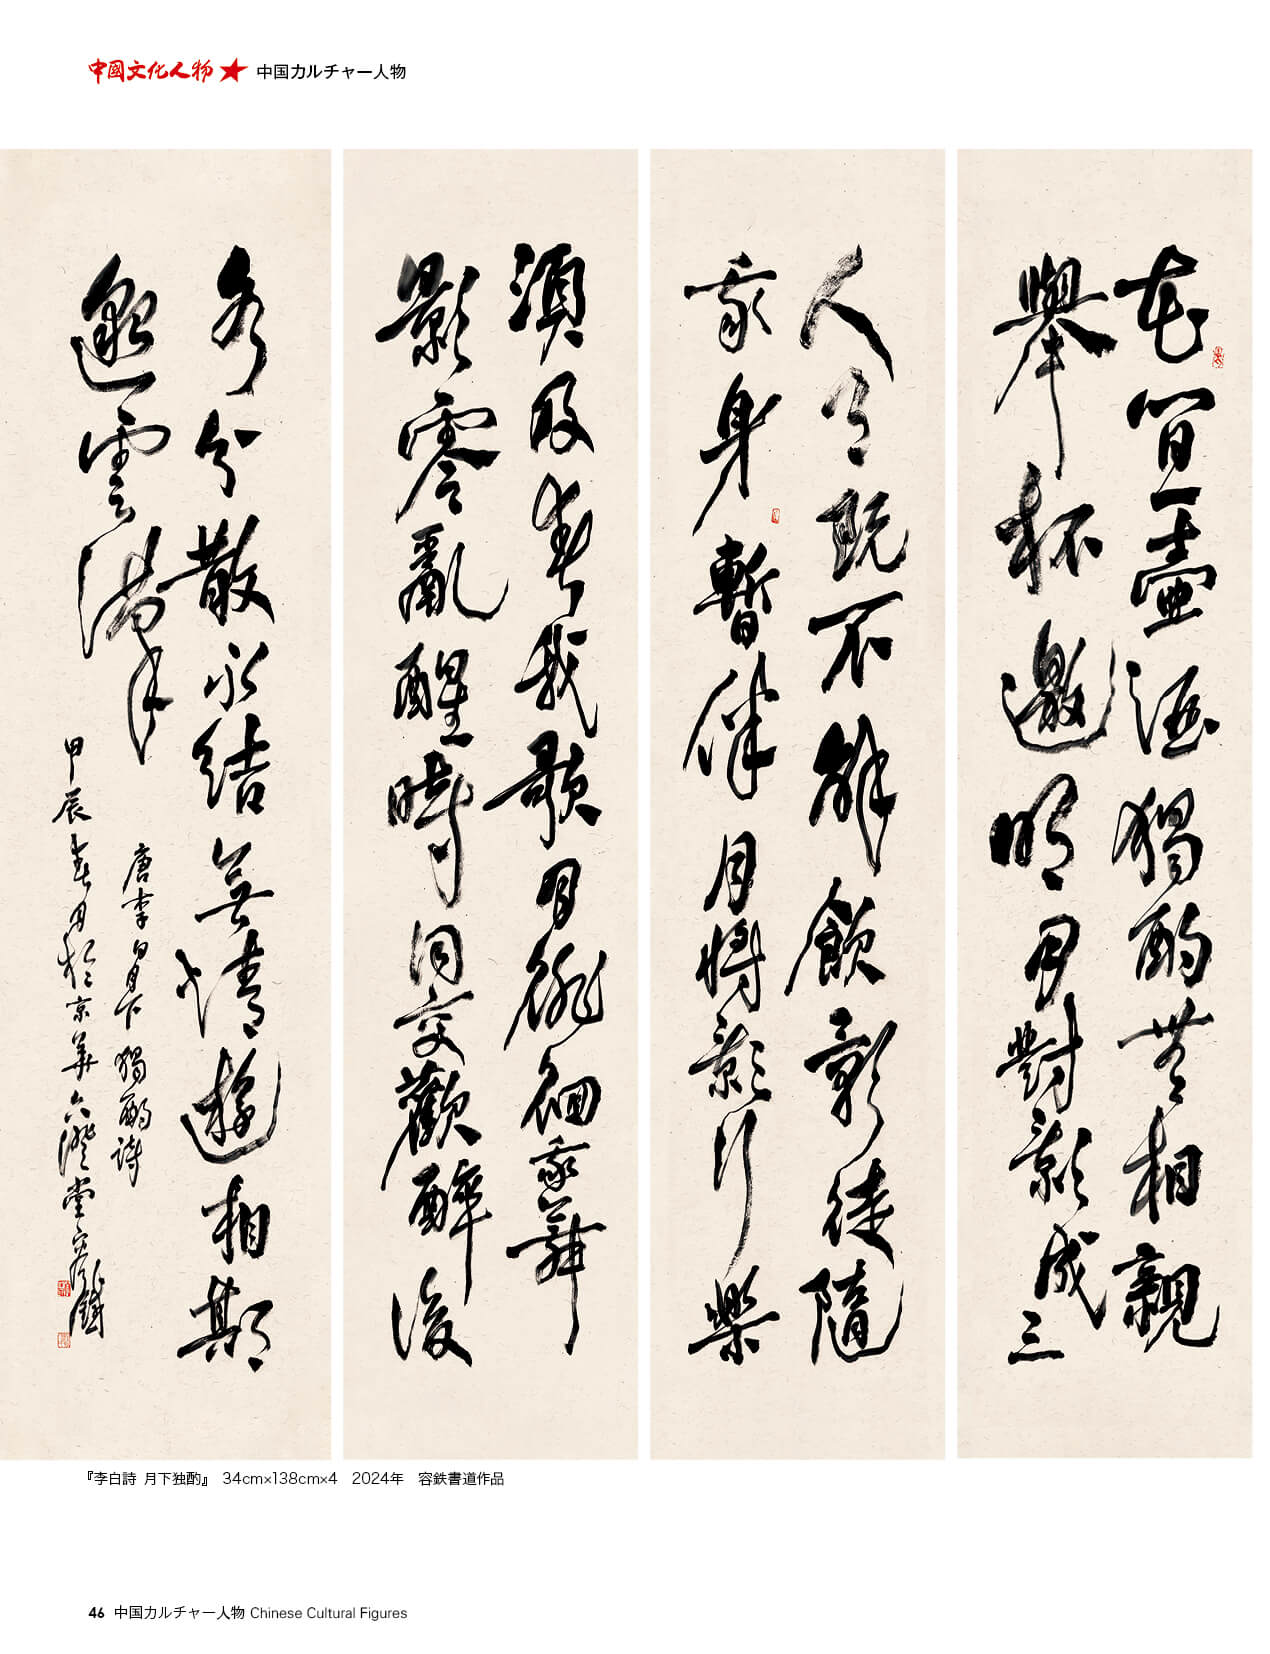 中國文化人物★中国カルチャー人物
花間一壺酒獨酌無相親
舉杯邀明月對影成三
人月既不解飲影徒隨
我身暫伴月將影行樂
須及春我歌月徘徊我舞
影零亂醒時同交歡醉後
各分散永結無情遊相期
邈雲漢
唐李白月下獨酌詩
甲辰春月於京華六澄堂容鐵
『李白詩 月下独酌』 34cm×138cm×4 2024年 容鉄書道作品
46 中国カルチャー人物 Chinese Cultural Figures